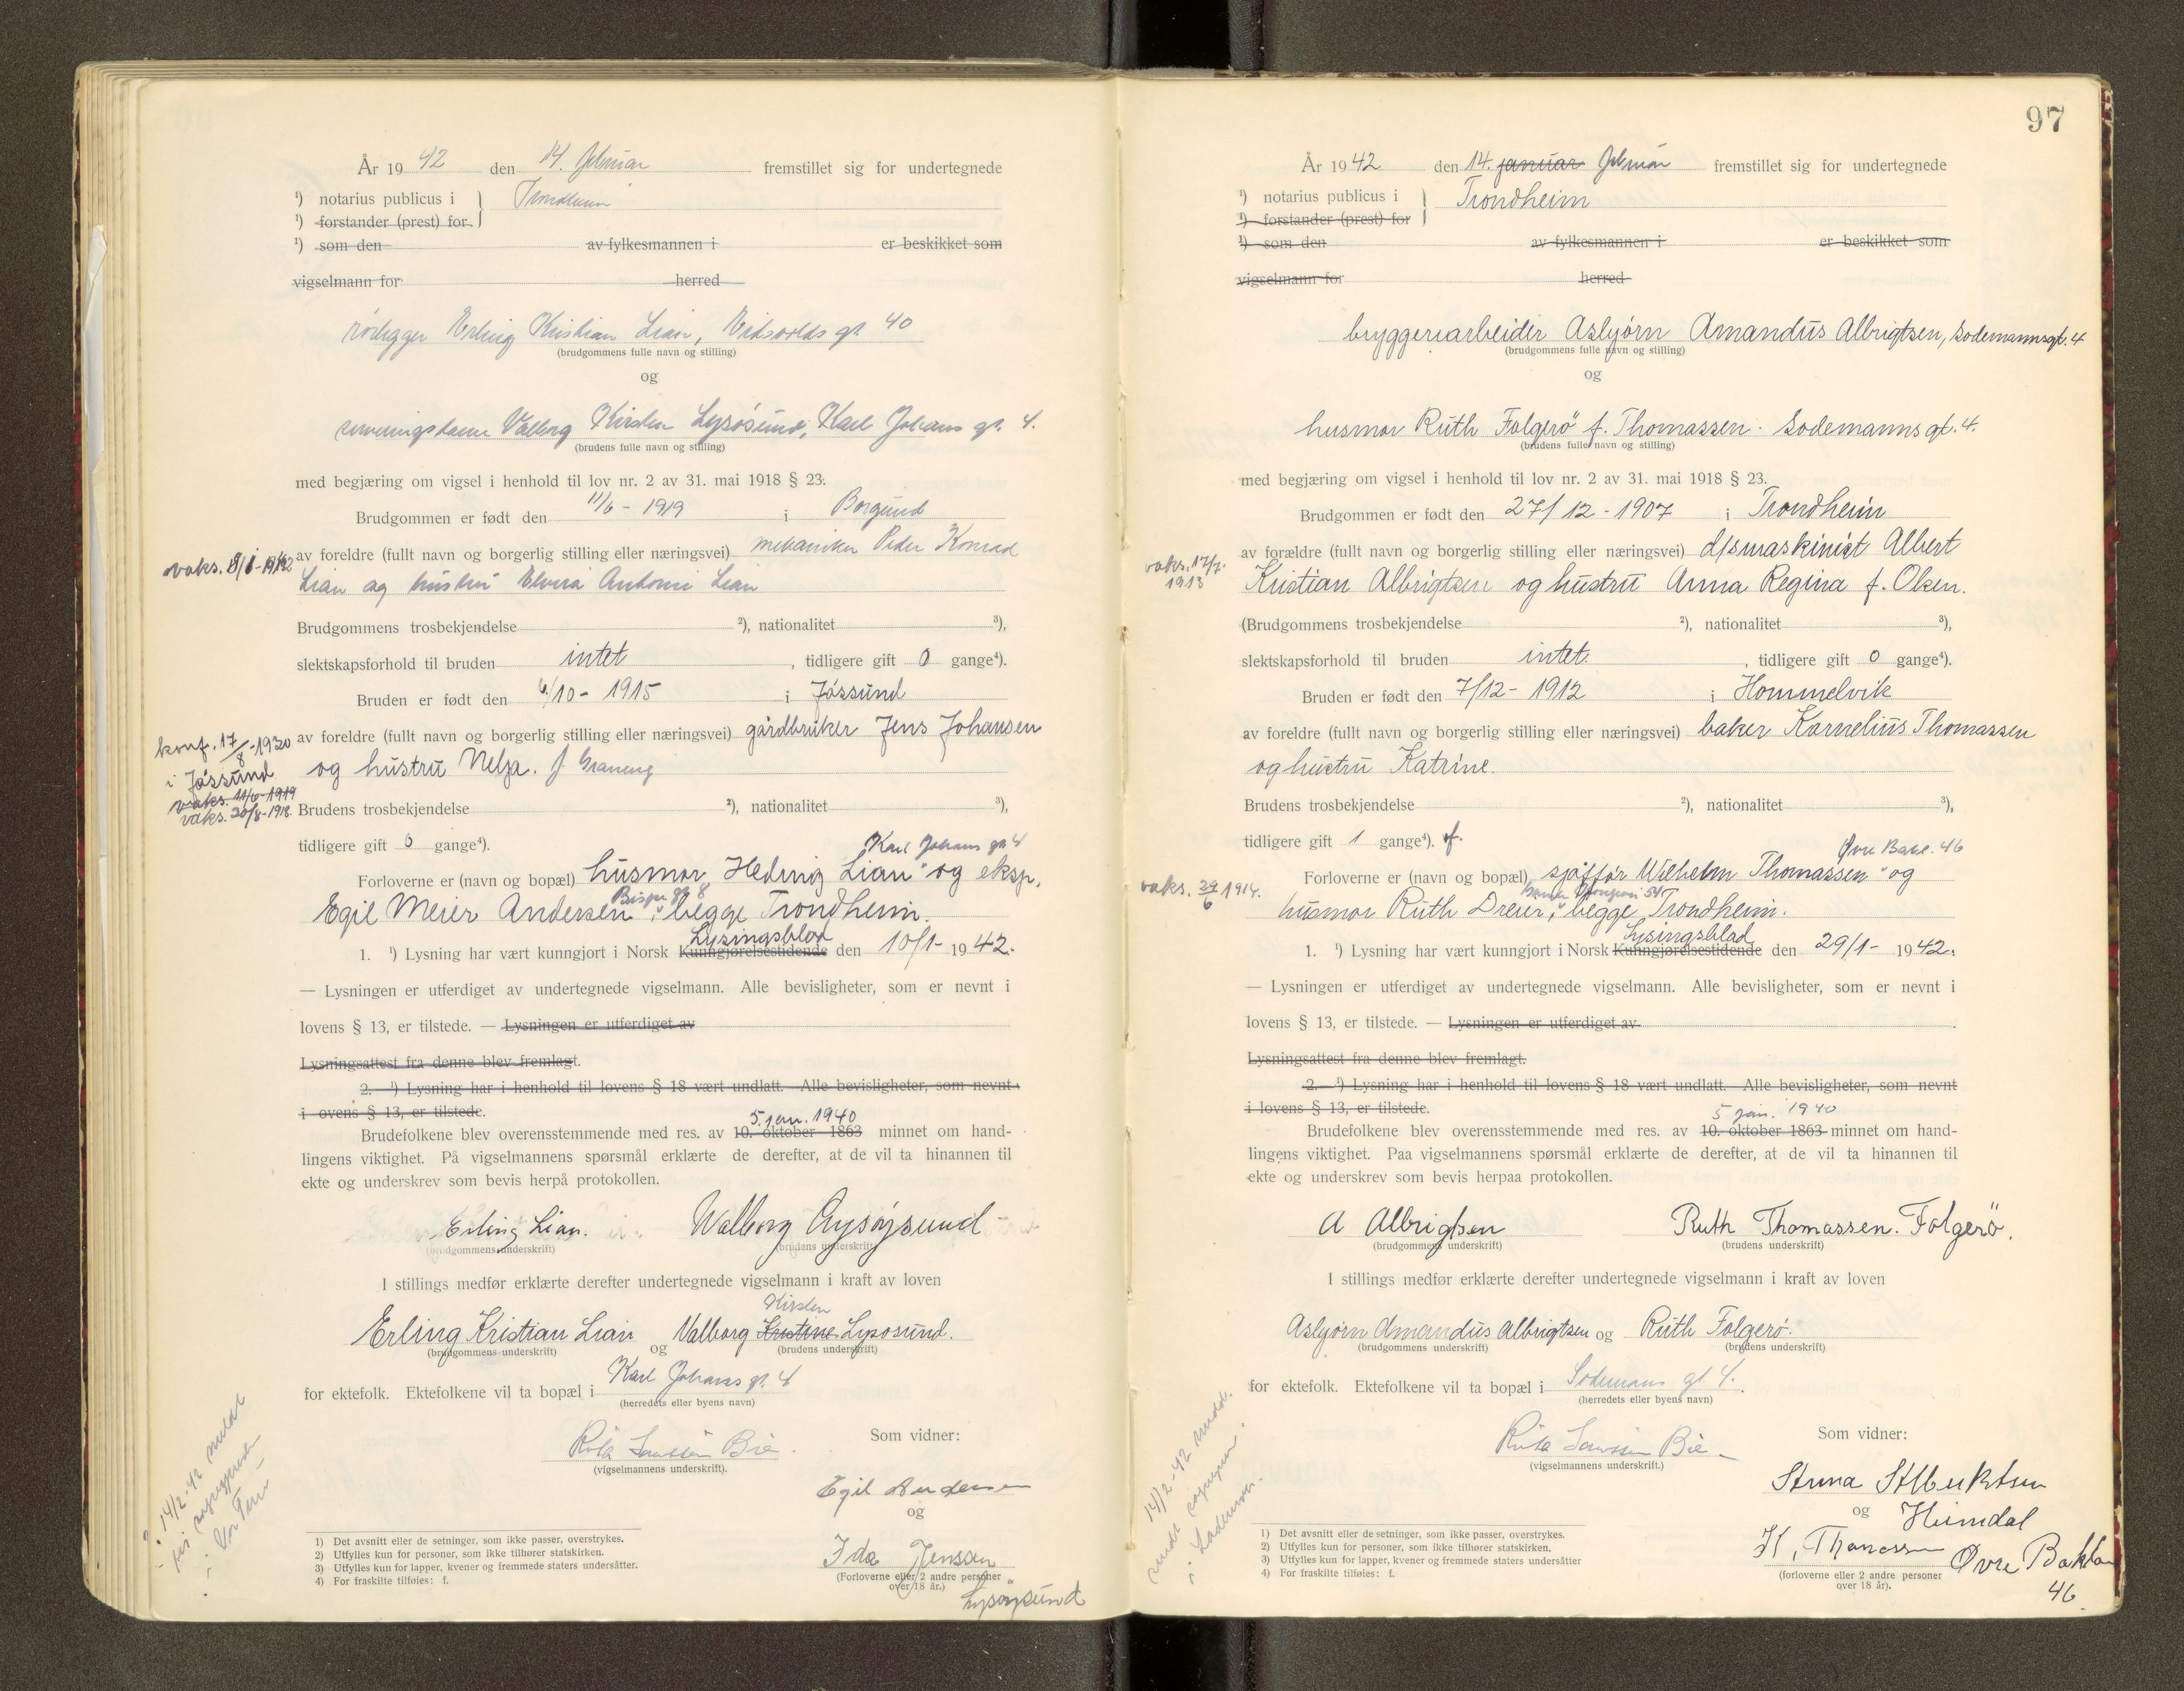 År 1942 den 14. februar fremstillet sig for undertegnede
¹) notarius publicus i } Trondheim
¹) forstander (prest) for
¹) som den av fylkesmannen i er beskikket som
vigselmann for herred
rørlegger Erling Kristian Lian, Eidsvolds gt 40
(brudgommens fulle navn og stilling)
og
serveringsdame Valborg Kirsten Lysøsund, Karl Johans gt. 4.
(brudens fulle navn og stilling)
med begjæring om vigsel i henhold til lov nr. 2 av 31. mai 1918 § 23.
Brudgommen er født den 11/6 - 1919 i Borgund
av foreldre (fullt navn og borgerlig stilling eller næringsvei) mekaniker Peder Konrad
Lian og hustru Elvira Antonie Lian
Brudgommens trosbekjendelse ²), nationalitet ³),
slektskapsforhold til bruden intet, tidligere gift 0 gange⁴).
Bruden er født den 6/10 - 1915 i Jøssund
konf. 17/8-1930
i Jøssund
vaks. 11/6-1919
vaks. 20/8-1918
av foreldre (fullt navn og borgerlig stilling eller næringsvei) gårdbruker Jens Johansen
og hustru Nelza. f.
Brudens trosbekjendelse ²), nationalitet ³),
tidligere gift 0 gange⁴).
Karl Johans gt 4
Forloverne er (navn og bopæl) husmor Hedvig Lian og eksp.
Egil Meier Andersen, begge Trondheim.
Lysingsblad
1. ¹) Lysning har vært kunngjort i Norsk Kunngjørelsestidende den 10/1- 1942.
— Lysningen er utferdiget av undertegnede vigselmann. Alle bevisligheter, som er nevnt i
lovens § 13, er tilstede. — Lysningen er utferdiget av
Lysningsattest fra denne blev fremlagt.
2. ¹) Lysning har i henhold til lovens § 18 vært undlatt. Alle bevisligheter, som nevnt
i ovens § 13, er tilstede.
5. jan. 1940
Brudefolkene blev overensstemmende med res. av 10. oktober 1863 minnet om hand-
lingens viktighet. På vigselmannens spørsmål erklærte de derefter, at de vil ta hinannen til
ekte og underskrev som bevis herpå protokollen.
Erling Lian. Walborg Lysøysund
(brudgommens underskrift) (brudens underskrift)
I stillings medfør erklærte derefter undertegnede vigselmann i kraft av loven
Kirsten
Erling Kristian Lian og Valborg Kristine Lysøsund.
(brudgommens underskrift) (brudens underskrift)
for ektefolk. Ektefolkene vil ta bopæl i Karl Johans gt. 4
(herredets eller byens navn)
Bie.
(vigselmannens underskrift).
Som vidner:
Egil Andersen
og
Ida Jenssen
(Forloverne eller 2 andre personer
over 18 år.)
Lysøysund
14/2-42 meldt
1) Det avsnitt eller de setninger, som ikke passer, overstrykes.
2) Utfylles kun for personer, som ikke tilhører statskirken.
3) Utfylles kun for lapper, kvener og fremmede staters undersåtter.
4) For fraskilte tilføies: f.
97
År 1942 den 14. januar februar fremstillet sig for undertegnede
¹) notarius publicus i } Trondheim
¹) forstander (prest) for
¹) som den av fylkesmannen i er beskikket som
vigselmann for herred
bryggeriarbeider Asbjørn Amandus Albrigtsen, Sodemannsgt. 4
(brudgommens fulle navn og stilling)
og
husmor Ruth Folgerö f. Thomassen. Sodemannsgt. 4.
(brudens fulle navn og stilling)
med begjæring om vigsel i henhold til lov nr. 2 av 31. mai 1918 § 23.
Brudgommen er født den 27/12 - 1907 i Trondheim
vaks. 17/7-
1913
av forældre (fullt navn og borgerlig stilling eller næringsvei) d/smaskinist Albert
Kristian Albrigtsen og hustru Anna Regina f. Olsen.
(Brudgommens trosbekjendelse ²), nationalitet ³),
slektskapsforhold til bruden intet., tidligere gift 0 gange⁴).
Bruden er født den 7/12 - 1912 i Hommelvik
av foreldre (fullt navn og borgerlig stilling eller næringsvei) baker Kornelius Thomassen
og hustru Katrine.
Brudens trosbekjendelse ²), nationalitet ³),
tidligere gift 1 gange⁴). f.
Øvre Bakl. 46
Forloverne er (navn og bopæl) sjåffør Wilhelm Thomassen og
vaks. 29/6 1914.
husmor Ruth Dreier, begge Trondheim.
Lysingsblad
1. ¹) Lysning har vært kunngjort i Norsk Kunngjørelsestidende den 29/1- 1942.
— Lysningen er utferdiget av undertegnede vigselmann. Alle bevisligheter, som er nevnt i
lovens § 13, er tilstede. — Lysningen er utferdiget av
Lysningsattest fra denne blev fremlagt.
2. ¹) Lysning har i henhold til lovens § 18 vært undlatt. Alle bevisligheter, som nevnt
i lovens § 13, er tilstede.
5 jan. 1940
Brudefolkene blev overensstemmende med res. av 10. oktober 1863 minnet om hand-
lingens viktighet. Paa vigselmannens spørsmål erklærte de derefter, at de vil ta hinannen til
ekte og underskrev som bevis herpaa protokollen.
A Albrigtsen Ruth Thomassen. Folgerö.
(brudgommens underskrift) (brudens underskrift)
I stillings medfør erklærte derefter undertegnede vigselmann i kraft av loven
Asbjørn Amandus Albrigtsen og Ruth Folgerö.
(brudgommens underskrift) (brudens underskrift)
for ektefolk. Ektefolkene vil ta bopæl i Sodemans gt 4.
(herredets eller byens navn)
Bie
(vigselmannens underskrift.)
Som vidner:
Anna Albriktsen
og Heimdal
Øvre Bakla
46.
(forloverne eller 2 andre personer
over 18 år).
14/2-42
i Lademoen.
1) Det avsnitt eller de setninger, som ikke passer, overstrykes.
2) Utfylles kun for personer, som ikke tilhører statskirken.
3) Utfylles kun for lapper, kvener og fremmede staters undersåtter
4) For fraskilte tilføies: f.